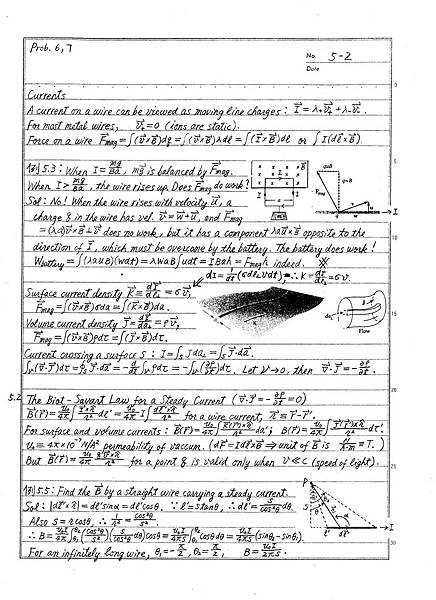 Prob. 6, 7
No. 5-2
Date
Currents
A current on a wire can be viewed as moving line charges: I⃗ = λ₊v⃗₊ + λ₋v⃗₋.
For most metal wires, v⃗₊ = 0 (ions are static).
Force on a wire F⃗mag = ∫(v⃗×B⃗)dq = ∫(v⃗×B⃗)λdl = ∫(I⃗×B⃗)dl or ∫I(dl⃗×B⃗).
例5.3: When I = mg/Ba, mg⃗ is balanced by F⃗mag.
When I > mg/Ba, the wire rises up. Does F⃗mag do work?
Sol: No! When the wire rises with velocity u⃗, a
charge q in the wire has vel. v⃗ = w⃗ + u⃗, and F⃗mag
= (λa)v⃗×B⃗ + v⃗ does no work, but it has a component λau⃗×B⃗ opposite to the
direction of I⃗, which must be overcome by the battery. The battery does work!
Wbattery = ∫(λauB)(wdt) = λwaB∫udt = IBah = Fmag h indeed.
Surface current density K⃗ = dI⃗/dl⊥ = σv⃗,
F⃗mag = ∫(v⃗×B⃗)σda = ∫(K⃗×B⃗)da.
Volume current density J⃗ = dI⃗/da⊥ = ρv⃗,
F⃗mag = ∫(v⃗×B⃗)ρdτ = ∫(J⃗×B⃗)dτ.
Flow
Current crossing a surface S: I = ∫s J da⊥ = ∫s J⃗·da⃗.
∫v(∇⃗·J⃗)dτ = ∮s J⃗·da⃗ = -d/dt ∫v ρdτ = ∫v(-∂ρ/∂t)dτ. Let V→0, then ∇⃗·J⃗ = -∂ρ/∂t.
5.2 The Biot-Savart Law for a Steady Current (∇⃗·J⃗ = -∂ρ/∂t = 0)
for a wire current,
For surface and volume currents:
μ₀ = 4π×10⁻⁷ N/A² permeability of vaccum. (dF⃗ = Idl⃗×B⃗ ⇒ unit of B⃗ is N/A·m = T.)
But for a point q is valid only when v ≪ c (speed of light).
例5.5: Find the B⃗ by a straight wire carrying a steady current.
Sol: = dl'sinα = dl'cosθ, ∵ l' = stanθ, ∴ dl' = s/cos²θ dθ.
Also s = r cosθ, ∴ 1/r² = cos²θ/s².
∴ B = μ₀I/4π ∫ (cos²θ/s²)(s/cos²θ dθ)cosθ = μ₀I/4πs ∫ cosθ dθ = μ₀I/4πs (sinθ₂ - sinθ₁).
For an infinitely long wire, θ₁ = -π/2, θ₂ = π/2, B = μ₀I/2πs.